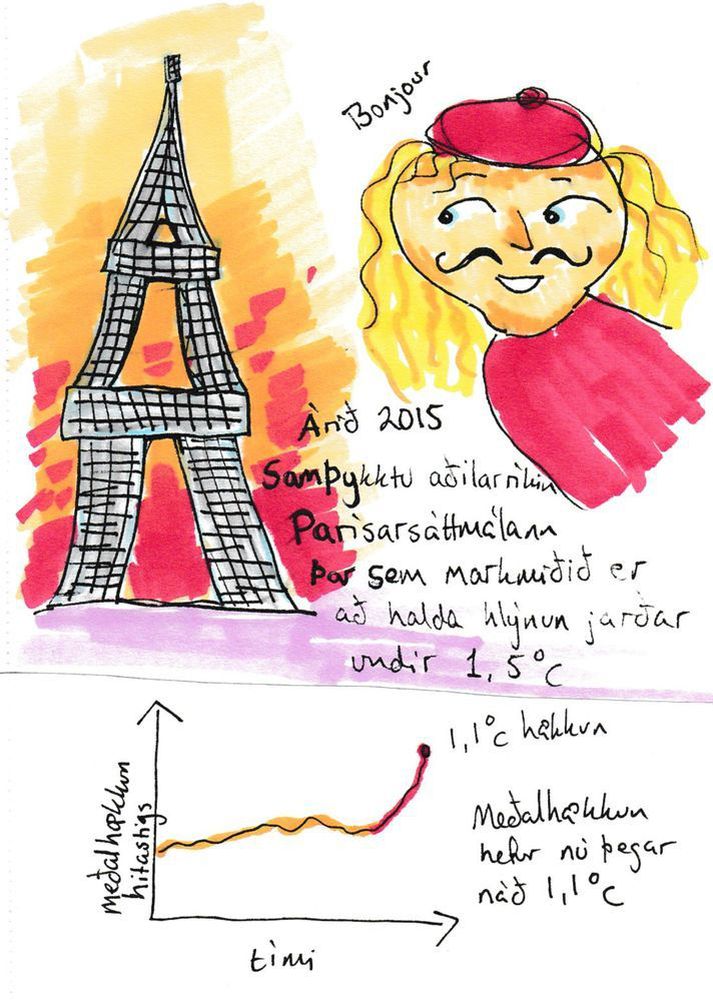 Bonjour
Árið 2015
samþykktu aðilarríkin
Parísarsáttmálann
þar sem markmiðið er
að halda hlýnun jarðar
undir 1,5°C
1,1°C hækkun
meðalhækkun
hitastigs
Meðalhækkun
hefur nú þegar
náð 1,1°C
tími